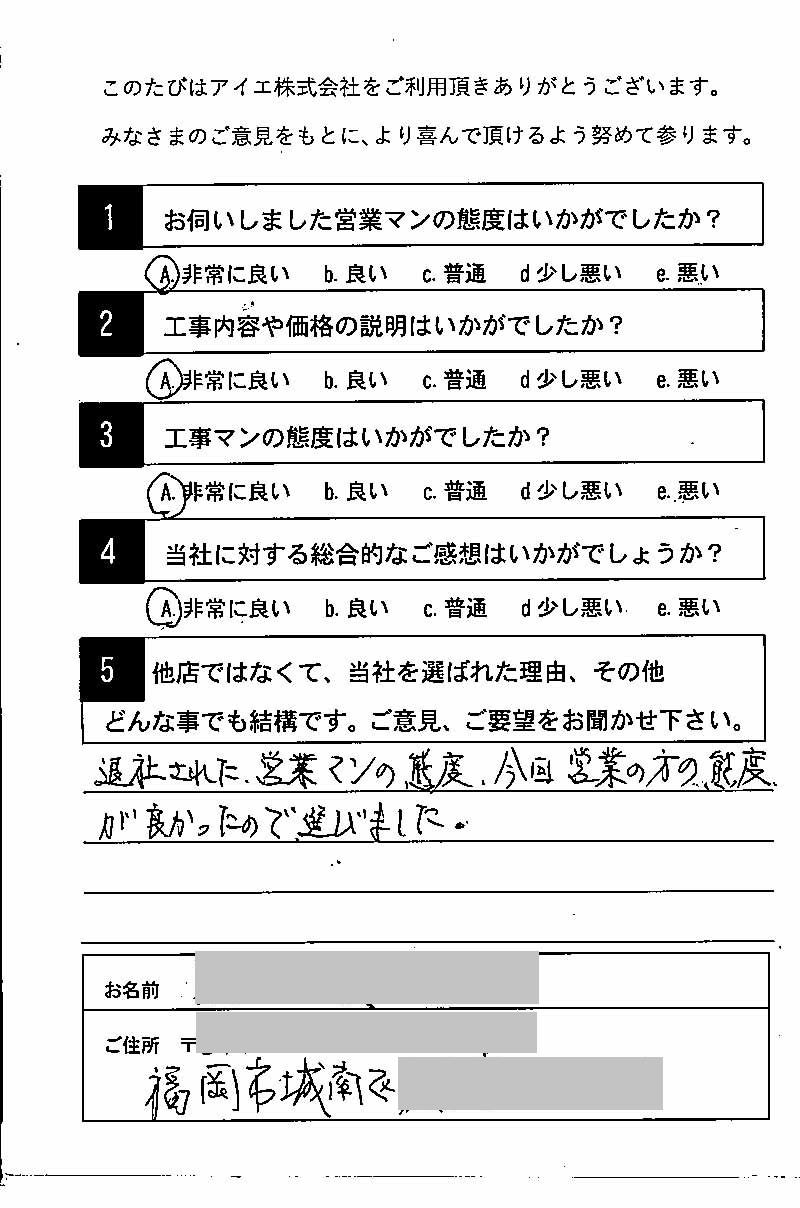 このたびはアイエ株式会社をご利用頂きありがとうございます。
みなさまのご意見をもとに、より喜んで頂けるよう努めて参ります。
1 お伺いしました営業マンの態度はいかがでしたか?
A. 非常に良い b. 良い c. 普通 d 少し悪い e. 悪い
2 工事内容や価格の説明はいかがでしたか?
A. 非常に良い b. 良い c. 普通 d 少し悪い e. 悪い
3 工事マンの態度はいかがでしたか?
A. 非常に良い b. 良い c. 普通 d 少し悪い e. 悪い
4 当社に対する総合的なご感想はいかがでしょうか?
A. 非常に良い b. 良い c. 普通 d 少し悪い e. 悪い
5 他店ではなくて、当社を選ばれた理由、その他
どんな事でも結構です。ご意見、ご要望をお聞かせ下さい。
退社された、営業マンの態度、今回営業の方の態度
が良かったので選びました。
お名前
ご住所 〒
福岡市城南区